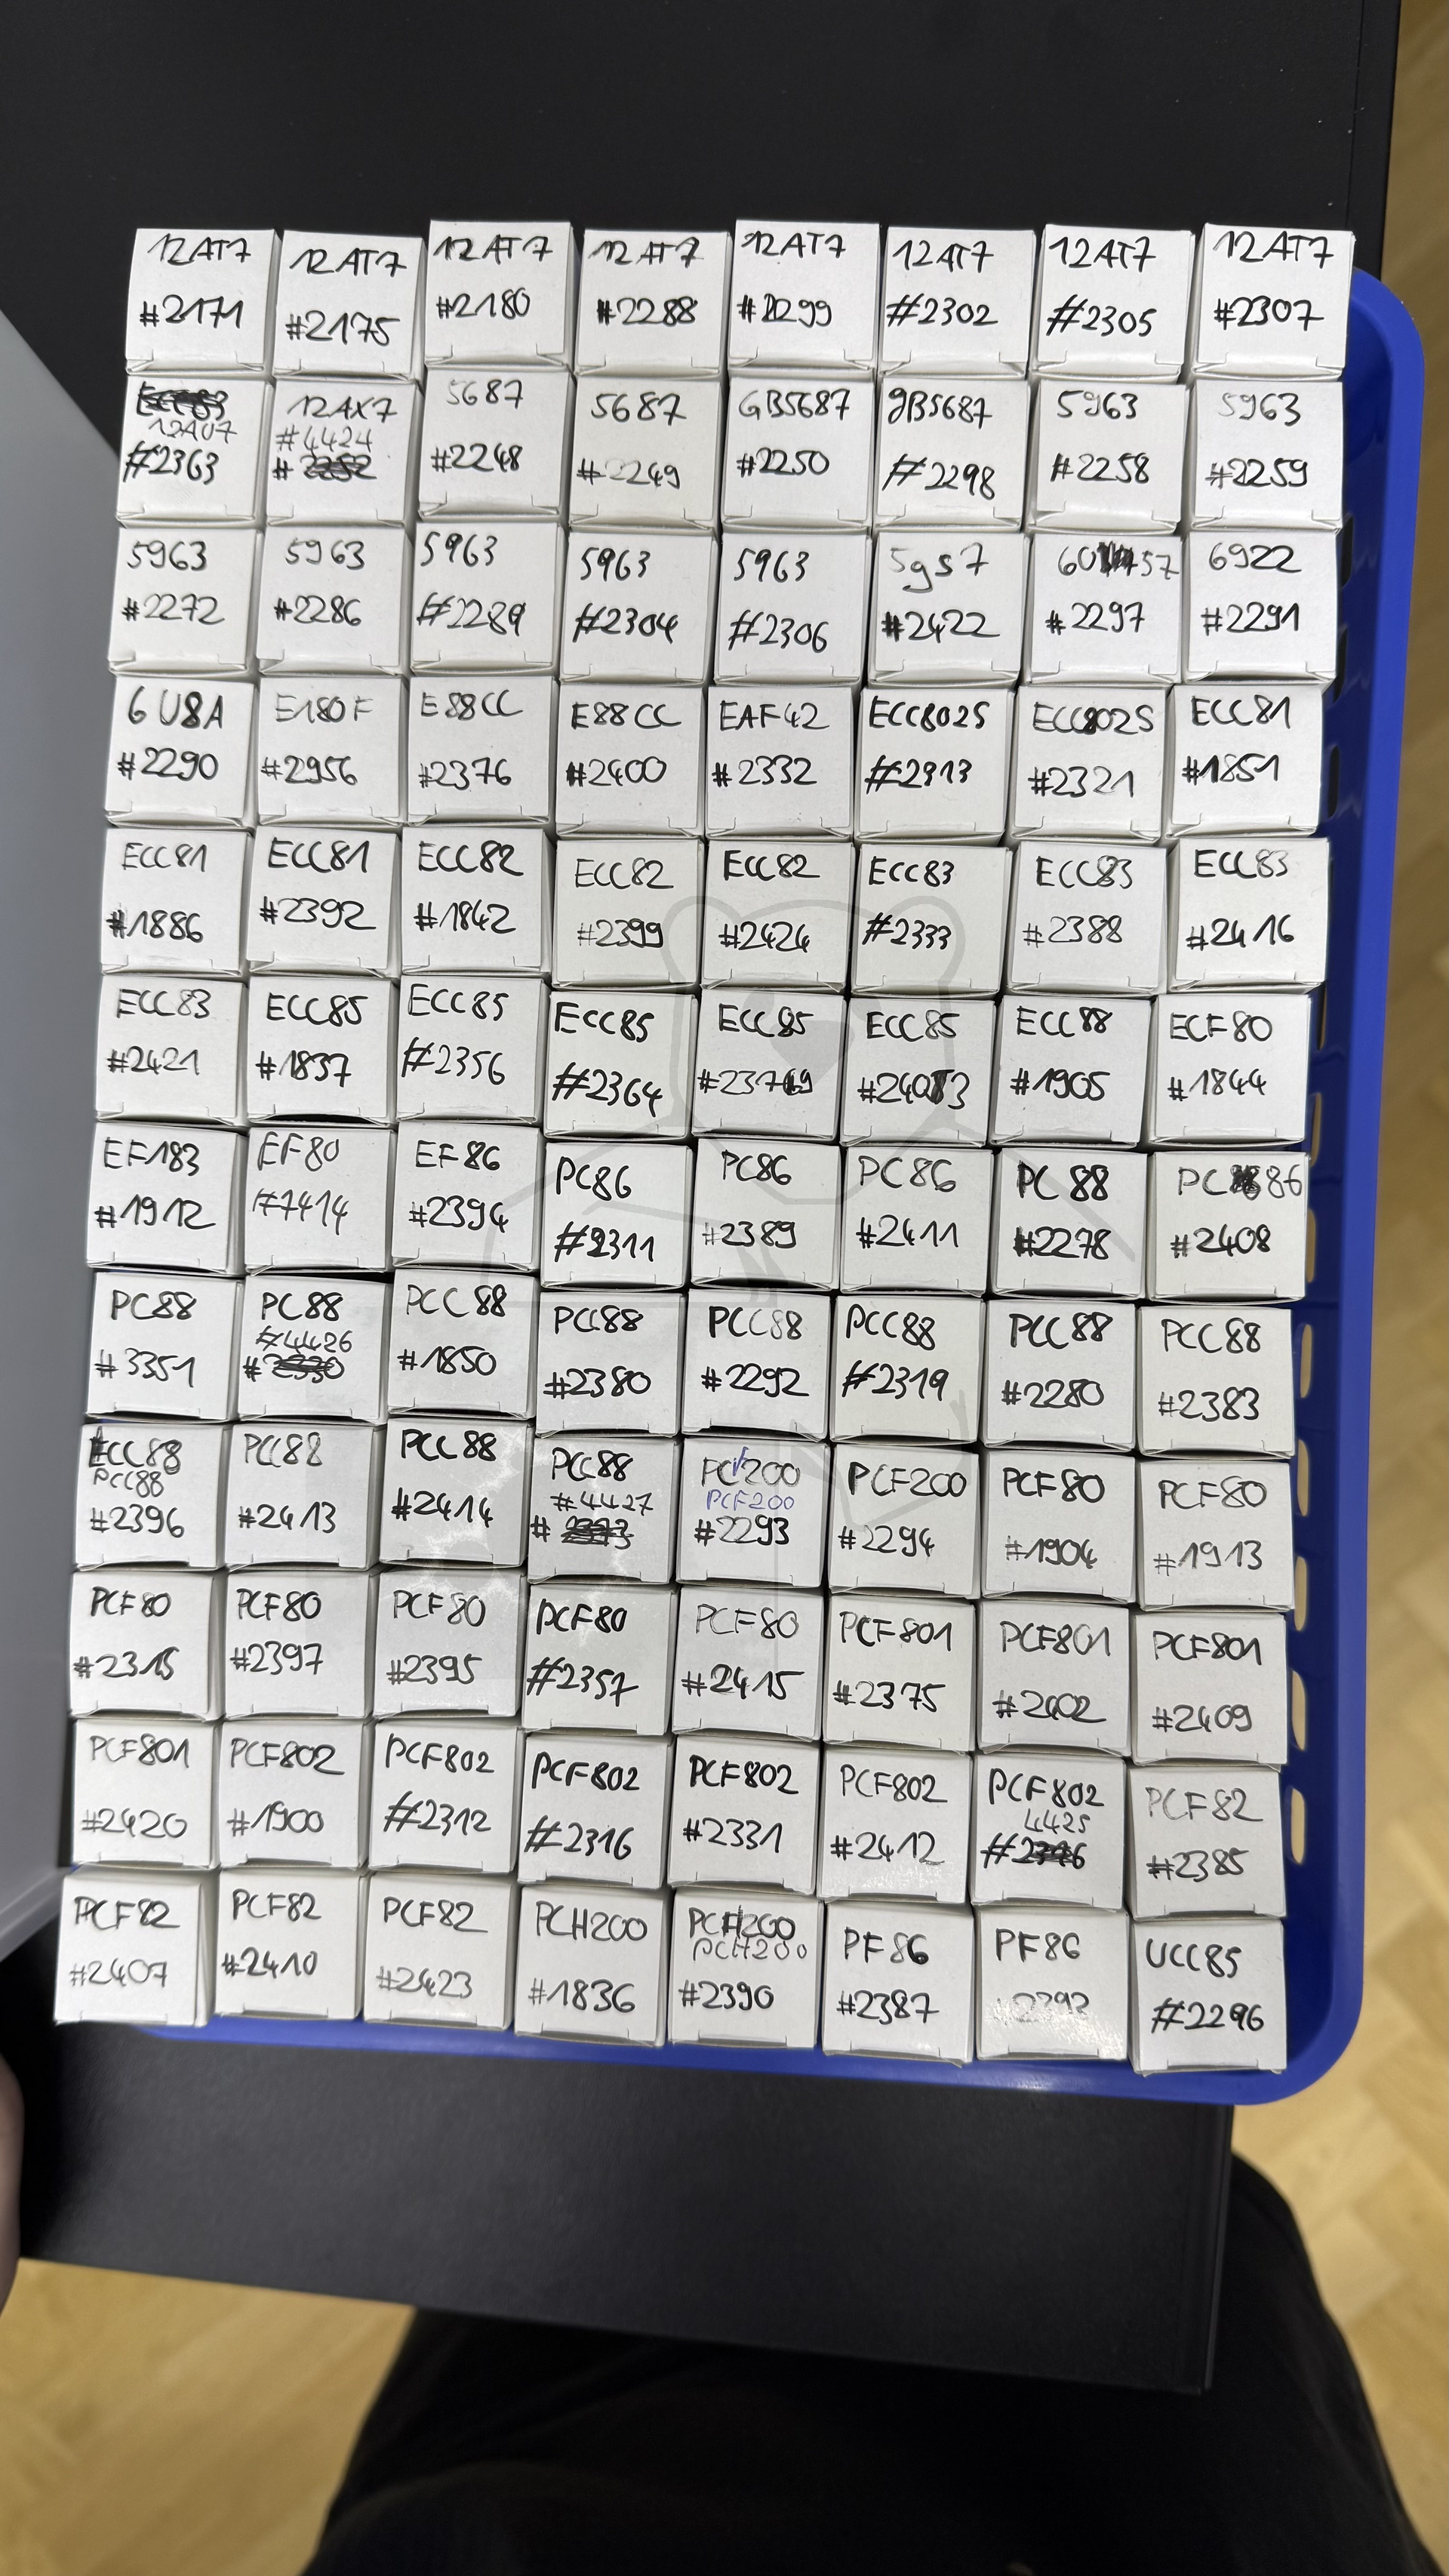 12AT7
#2171
12AT7
#2175
12AT7
#2180
12AT7
#2288
12AT7
#2299
12AT7
#2302
12AT7
#2305
12AT7
#2307
12AU7
#2363
12AX7
#4424
#
5687
#2248
5687
#2249
GB5687
#2250
GB5687
#2298
5963
#2258
5963
#2259
5963
#2272
5963
#2286
5963
#2289
5963
#2304
5963
#2306
5957
#2422
#2297
6922
#2291
6U8A
#2290
E180F
#2956
E88CC
#2376
E88CC
#2400
EAF42
#2332
ECC802S
#2313
ECC802S
#2321
ECC81
#1851
ECC81
#1886
ECC81
#2392
ECC82
#1842
ECC82
#2399
ECC82
#2424
ECC83
#2333
ECC83
#2388
ECC83
#2416
ECC83
#2421
ECC85
#1837
ECC85
#2356
ECC85
#2364
ECC85
ECC85
ECC88
#1905
ECF80
#1844
EF183
#1912
EF80
#7414
EF86
#2394
PC86
#2311
PC86
#2389
PC86
#2411
PC88
#2278
PC 86
#2408
PC88
#3351
PC88
#4426
#
PCC88
#1850
PCC88
#2380
PCC88
#2292
PCC88
#2319
PCC88
#2280
PCC88
#2383
ECC88
PCC88
#2396
PCC88
#2413
PCC88
#2414
PCC88
#4427
#
PCF200
PCF200
#2293
PCF200
#2294
PCF80
#1904
PCF80
#1913
PCF80
#2315
PCF80
#2397
PCF80
#2395
PCF80
#2357
PCF80
#2415
PCF801
#2375
PCF801
#2402
PCF801
#2409
PCF801
#2420
PCF802
#1900
PCF802
#2312
PCF802
#2316
PCF802
#2331
PCF802
#2412
PCF802
4425
#
PCF82
#2385
PCF82
#2407
PCF82
#2410
PCF82
#2423
PCH200
#1836
PCH200
PCH200
#2390
PF86
#2387
PF86
UCC85
#2296